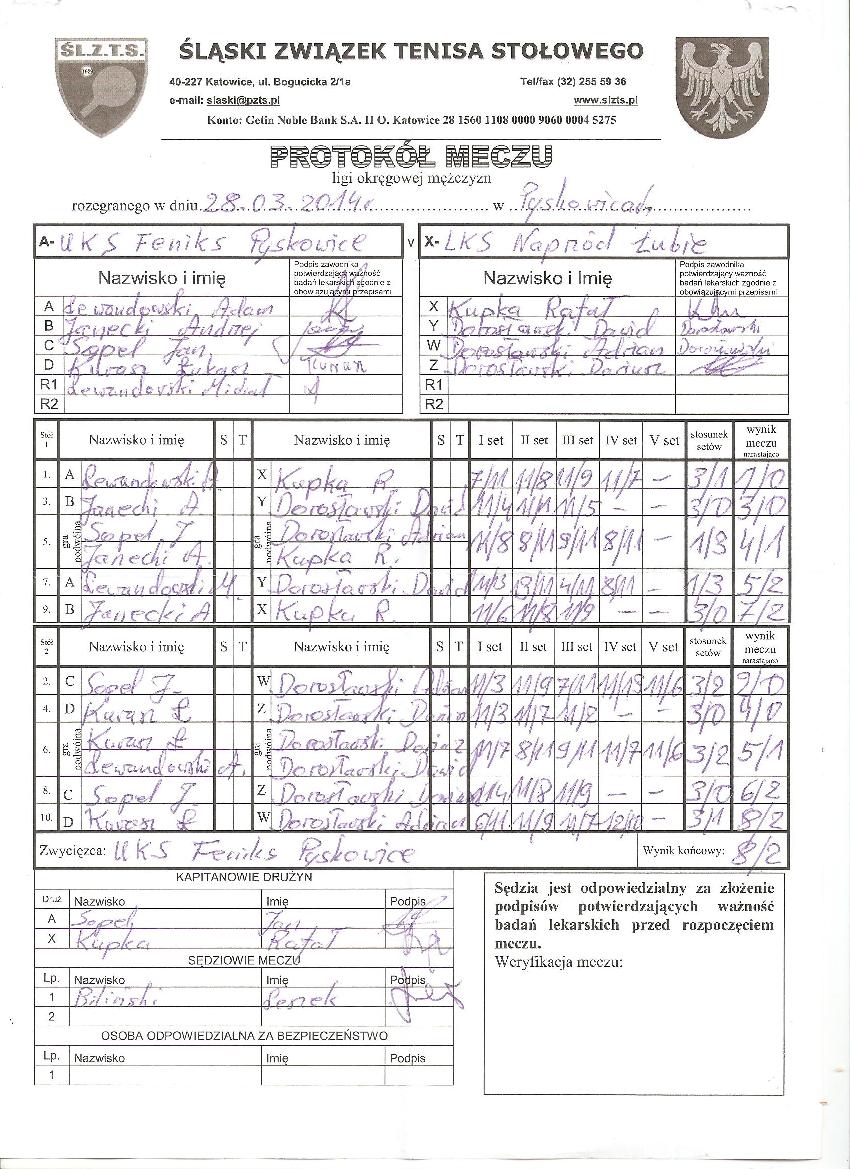 Ś.L.Z.T.S.
ŚLĄSKI ZWIĄZEK TENISA STOŁOWEGO
40-227 Katowice, ul. Bogucicka 2/1a Tel/fax (32) 255 59 36
e-mail: slaski@pzts.pl www.slzts.pl
Konto: Getin Noble Bank S.A. II O. Katowice 28 1560 1108 0000 9060 0004 5275
PROTOKÓŁ MECZU
ligi okręgowej mężczyzn
rozegranego w dniu 28.03.2014r. w Pyskowicach
A- UKS Feniks Pyskowice v X- LKS Naprzód Łubie
Nazwisko i imię Podpis zawodnika potwierdzający ważność badań lekarskich zgodnie z obowiązującymi przepisami Nazwisko i Imię Podpis zawodnika potwierdzający ważność badań lekarskich zgodnie z obowiązującymi przepisami
A Lewandowski Adam X Kupka Rafał
B Janecki Andrzej Y Dorosławski Dawid
C Sopel Jan W Dorosławski Adrian
D Kurasz Łukasz Z Dorosławski Dariusz
R1 Lewandowski Michał R1
R2 R2
Stół 1 Nazwisko i imię S T Nazwisko i imię S T I set II set III set IV set V set stosunek setów wynik meczu narastająco
1. A Lewandowski A X Kupka R. 7/11 11/8 11/9 11/7 – 3/1 1/0
3. B Janecki A Y Dorosławski Dawid 11/4 11/5 – – 3/0 3/0
5. gra podwójna Sopel J. gra podwójna Dorosławski Adrian 11/8 8/11 9/11 8/11 – 1/3 4/1
Janecki A. Kupka R.
7. A Lewandowski M. Y Dorosławski Dawid 4/11 8/11 – 1/3 5/2
9. B Janecki A X Kupka R. 11/6 11/8 11/9 – – 3/0 7/2
Stół 2 Nazwisko i imię S T Nazwisko i imię S T I set II set III set IV set V set stosunek setów wynik meczu narastająco
2. C Sopel J. W Dorosławski Adrian 11/3 11/9 7/11 11/6 3/2
4. D Kurasz Ł Z Dorosławski Dariusz 11/3 11/7 11/8 – – 3/0 4/0
6. gra podwójna Kurasz Ł gra podwójna Dorosławski Dariusz 11/7 8/11 9/11 11/7 11/6 3/2 5/1
Lewandowski A. Dorosławski Dawid
8. C Sopel J. Z Dorosławski 11/8 11/9 – – 3/0 6/2
10. D Kurasz Ł W Dorosławski Adrian 6/11 11/9 11/7 3/1 8/2
Zwycięzca: UKS Feniks Pyskowice Wynik końcowy: 8/2
KAPITANOWIE DRUŻYN
Druż. Nazwisko Imię Podpis
A Sopel Jan
X Kupka Rafał
SĘDZIOWIE MECZU
Lp. Nazwisko Imię Podpis
1 Biliński Leszek
2
OSOBA ODPOWIEDZIALNA ZA BEZPIECZEŃSTWO
Lp. Nazwisko Imię Podpis
1
Sędzia jest odpowiedzialny za złożenie
podpisów potwierdzających ważność
badań lekarskich przed rozpoczęciem
meczu.
Weryfikacja meczu: